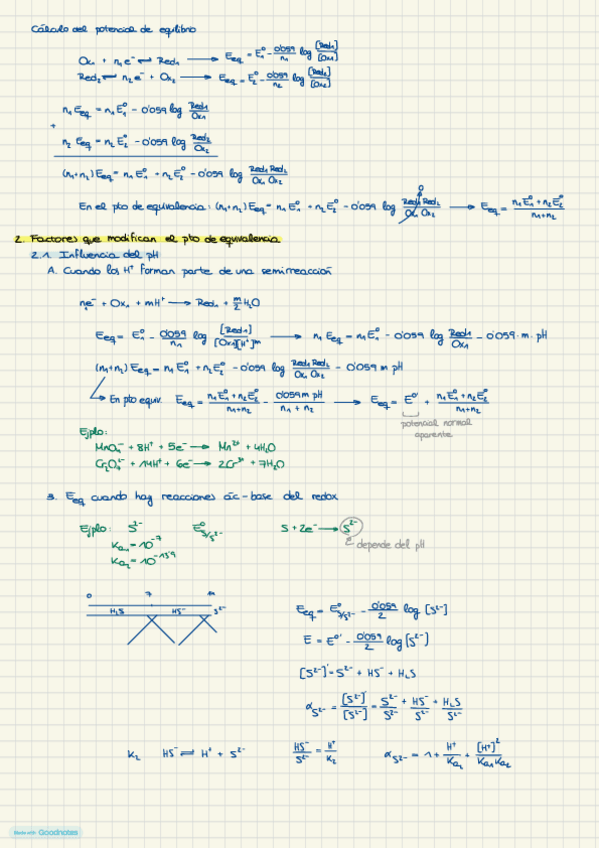 Cálculo del potencial de equilibrio
Ox₁ + n₁e⁻ ⇌ Red₁ ⟶ Eeq = E₁⁰ - 0'059/n₁ log [Red₁]/[Ox₁]
Red₂ ⇌ n₂e⁻ + Ox₂ ⟶ Eeq = E₂⁰ - 0'059/n₂ log [Red₂]/[Ox₂]
n₁ Eeq = n₁E₁⁰ - 0'059 log Red₁/Ox₁
+
n₂ Eeq = n₂E₂⁰ - 0'059 log Red₂/Ox₂
(n₁+n₂) Eeq = n₁E₁⁰ + n₂E₂⁰ - 0'059 log Red₁ Red₂/Ox₁ Ox₂
En el pto de equivalencia: (n₁+n₂) Eeq = n₁E₁⁰ + n₂E₂⁰ - 0'059 log Red₁ Red₂/Ox₁ Ox₂ 0 ⟶ Eeq = n₁E₁⁰ + n₂E₂⁰/n₁+n₂
2. Factores que modifican el pto de equivalencia
2.1. Influencia del pH
A. Cuando los H⁺ forman parte de una semirreacción
n₁e⁻ + Ox₁ + mH⁺ ⟶ Red₁ + m/2 H₂O
Eeq = E₁⁰ - 0'059/n₁ log [Red₁]/[Ox₁][H⁺]ᵐ ⟶ n₁ Eeq = n₁E₁⁰ - 0'059 log Red₁/Ox₁ - 0'059 · m · pH
(n₁+n₂) Eeq = n₁E₁⁰ + n₂E₂⁰ - 0'059 log Red₁ Red₂/Ox₁ Ox₂ - 0'059 m pH
En pto equiv. Eeq = n₁E₁⁰ + n₂E₂⁰/n₁+n₂ - 0'059 m pH/n₁ + n₂ ⟶ Eeq = E⁰' + n₁E₁⁰ + n₂E₂⁰/n₁+n₂
potencial normal
aparente
Ejplo:
MnO₄⁻ + 8H⁺ + 5e⁻ ⟶ Mn²⁺ + 4H₂O
+ 14H⁺ + 6e⁻ ⟶ 2Cr³⁺ + 7H₂O
3. Eeq cuando hay reacciones ác-base del redox
Ejplo: S²⁻ E⁰S/S²⁻ S + 2e⁻ ⟶ S²⁻
Ka₁ = 10⁻⁷ depende del pH
Ka₂ = 10⁻¹³'⁹
0 7 14
H₂S HS⁻ S²⁻
Eeq = E⁰S/S²⁻ - 0'059/2 log [S²⁻]
E = E⁰' - 0'059/2 log [S²⁻]
[S²⁻]' = S²⁻ + HS⁻ + H₂S
αS²⁻ = [S²⁻]'/[S²⁻] = S²⁻/S²⁻ + HS⁻/S²⁻ + H₂S/S²⁻
K₂ HS⁻ ⇌ H⁺ + S²⁻ HS⁻/S²⁻ = H⁺/K₂ αS²⁻ = 1 + H⁺/Ka₂ + [H⁺]²/Ka₁Ka₂
Made with Goodnotes